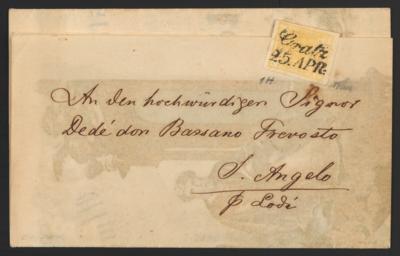 Gratz
25. APR.
1H
An den hochwürdigen Signor
Dedé don Bassano Trevosto
S. Angelo
p Lodi